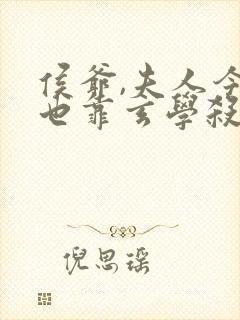 侯爺,夫人今
也靠玄學殺
倪思瑶